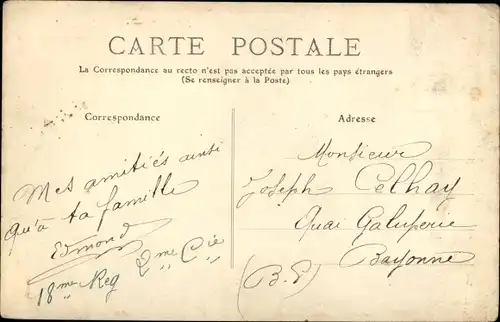 CARTE POSTALE
La Correspondance au recto n'est pas acceptée par tous les pays étrangers
(Se renseigner à la Poste)
Correspondance
Mes amitiés ainsi
qu'à ta famille
Edmond
18me Reg 2me Cie
Adresse
Monsieur
Joseph Celhay
Quai Galuperie
Bayonne
(B.P)